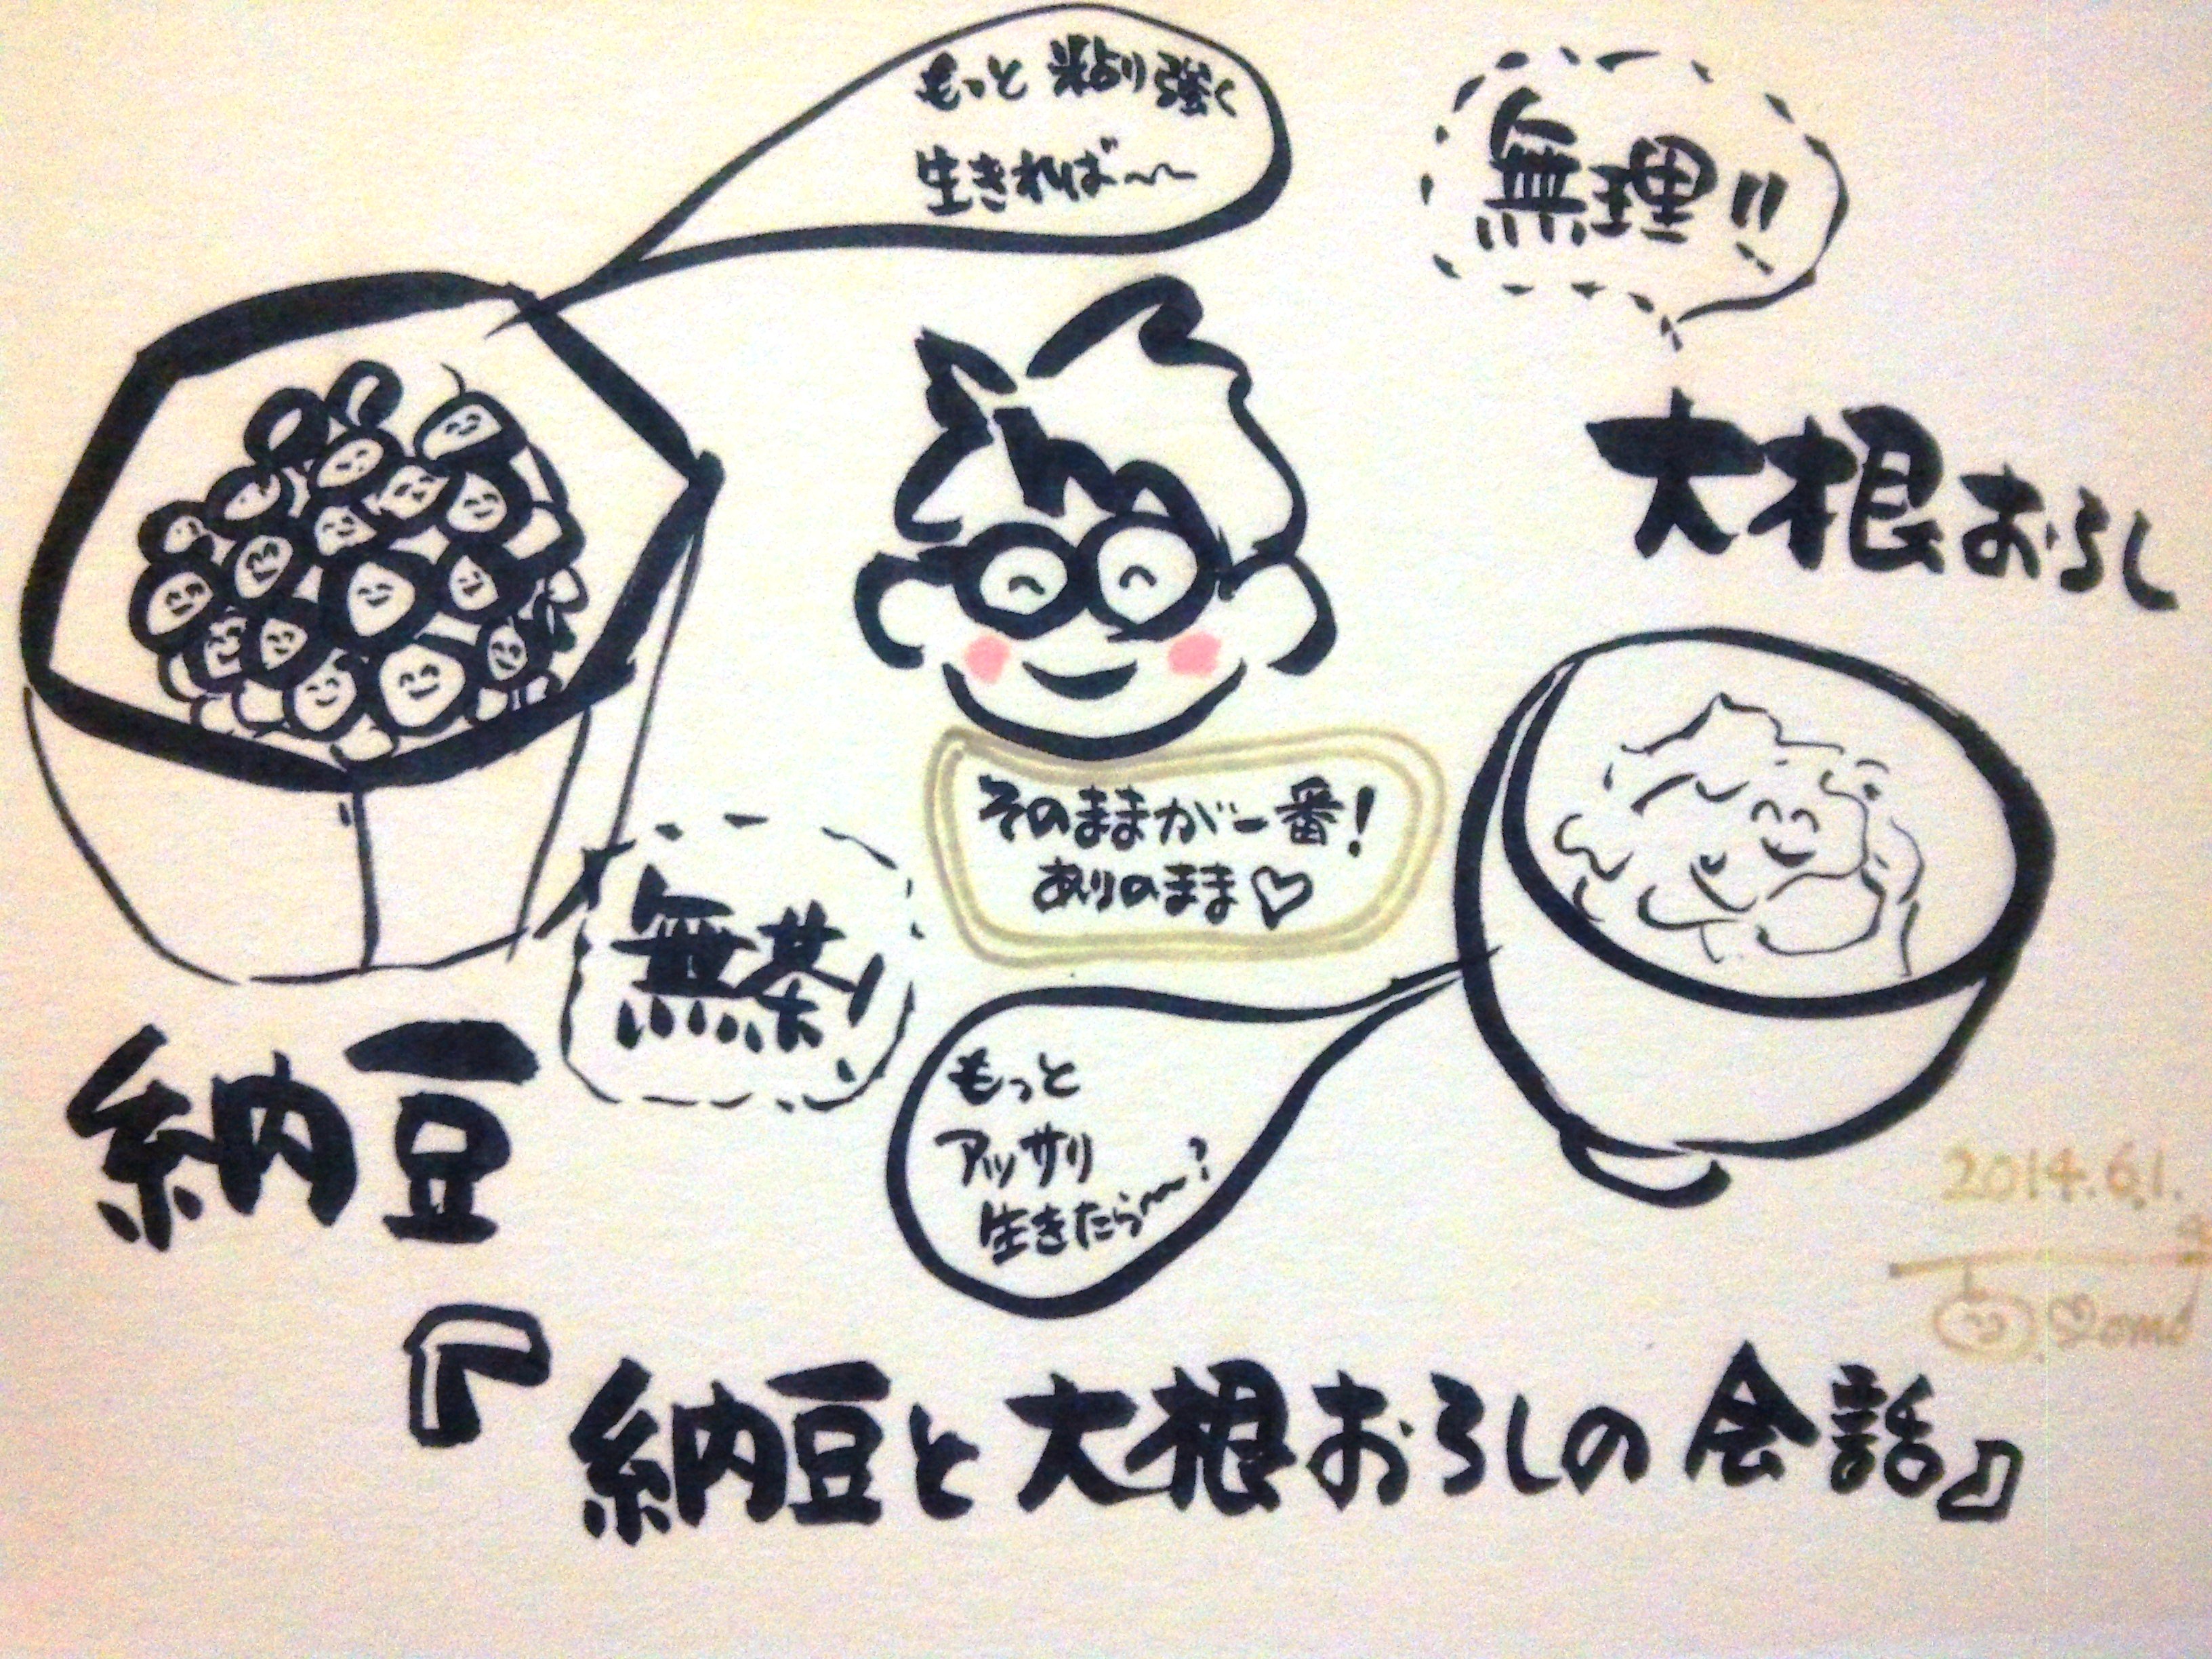 もっと粘り強く
生きれば〜〜
無理!!
大根おろし
そのままが一番!
ありのまま♡
無茶!
もっと
アッサリ
生きたら〜〜?
納豆
2014.6.1.
『納豆と大根おろしの会話』